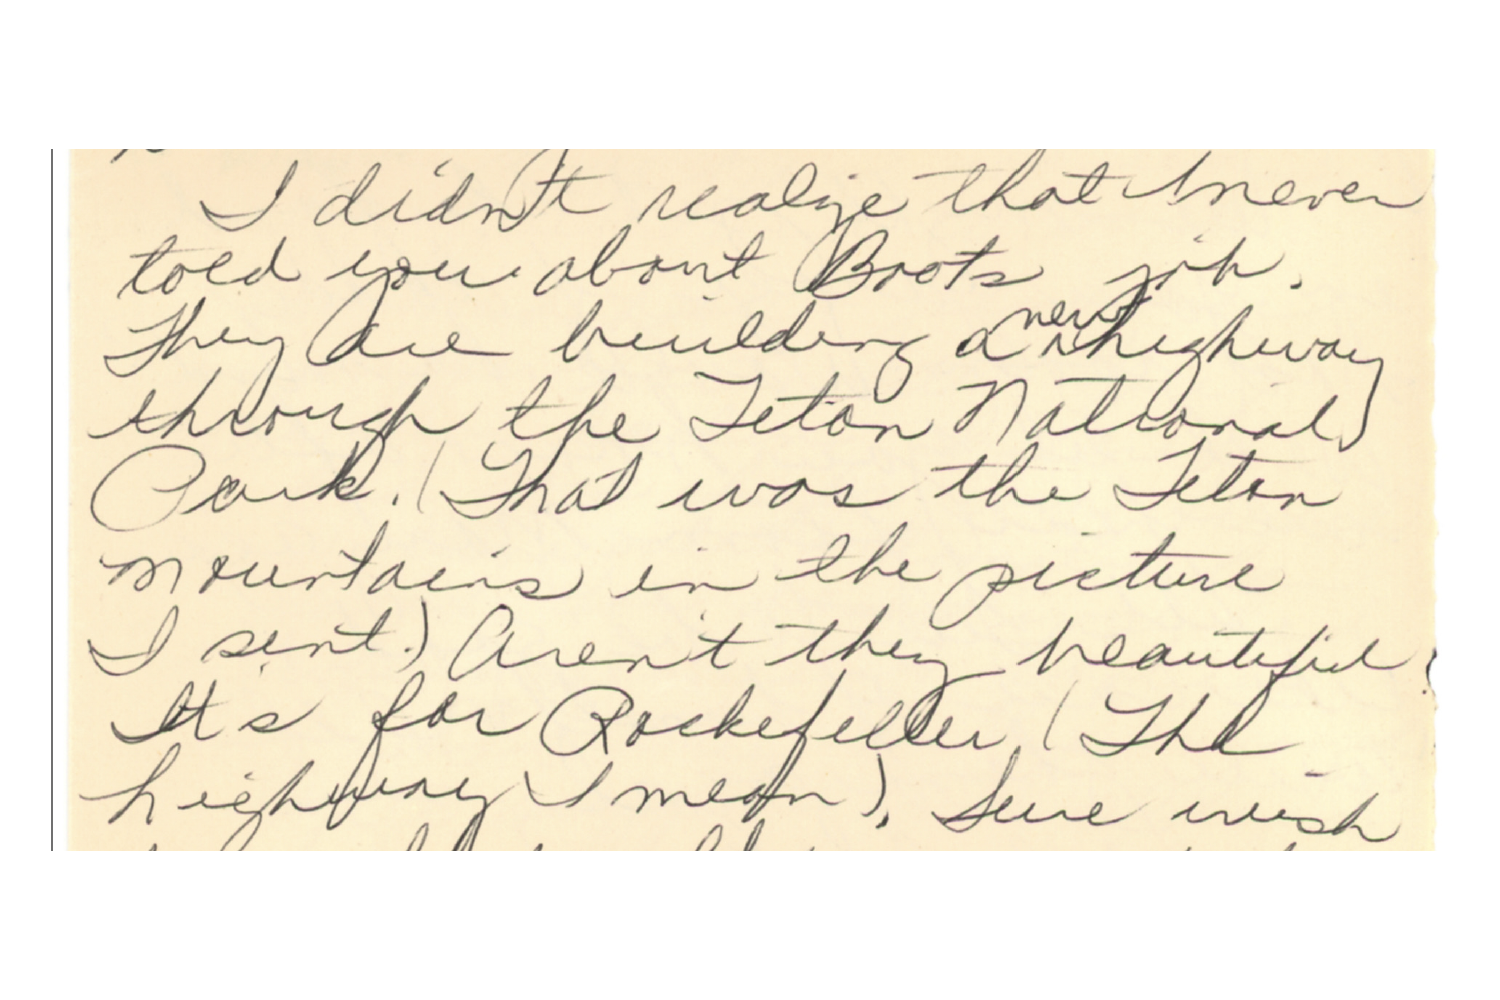 I didn't realize that I never
told you about Boots job.
They are building a new highway
through the Teton National
Park. (That was the Teton
mountains in the picture
I sent.) Aren't they beautiful?
It's for Rockefeller (The
highway I mean). Sure wish